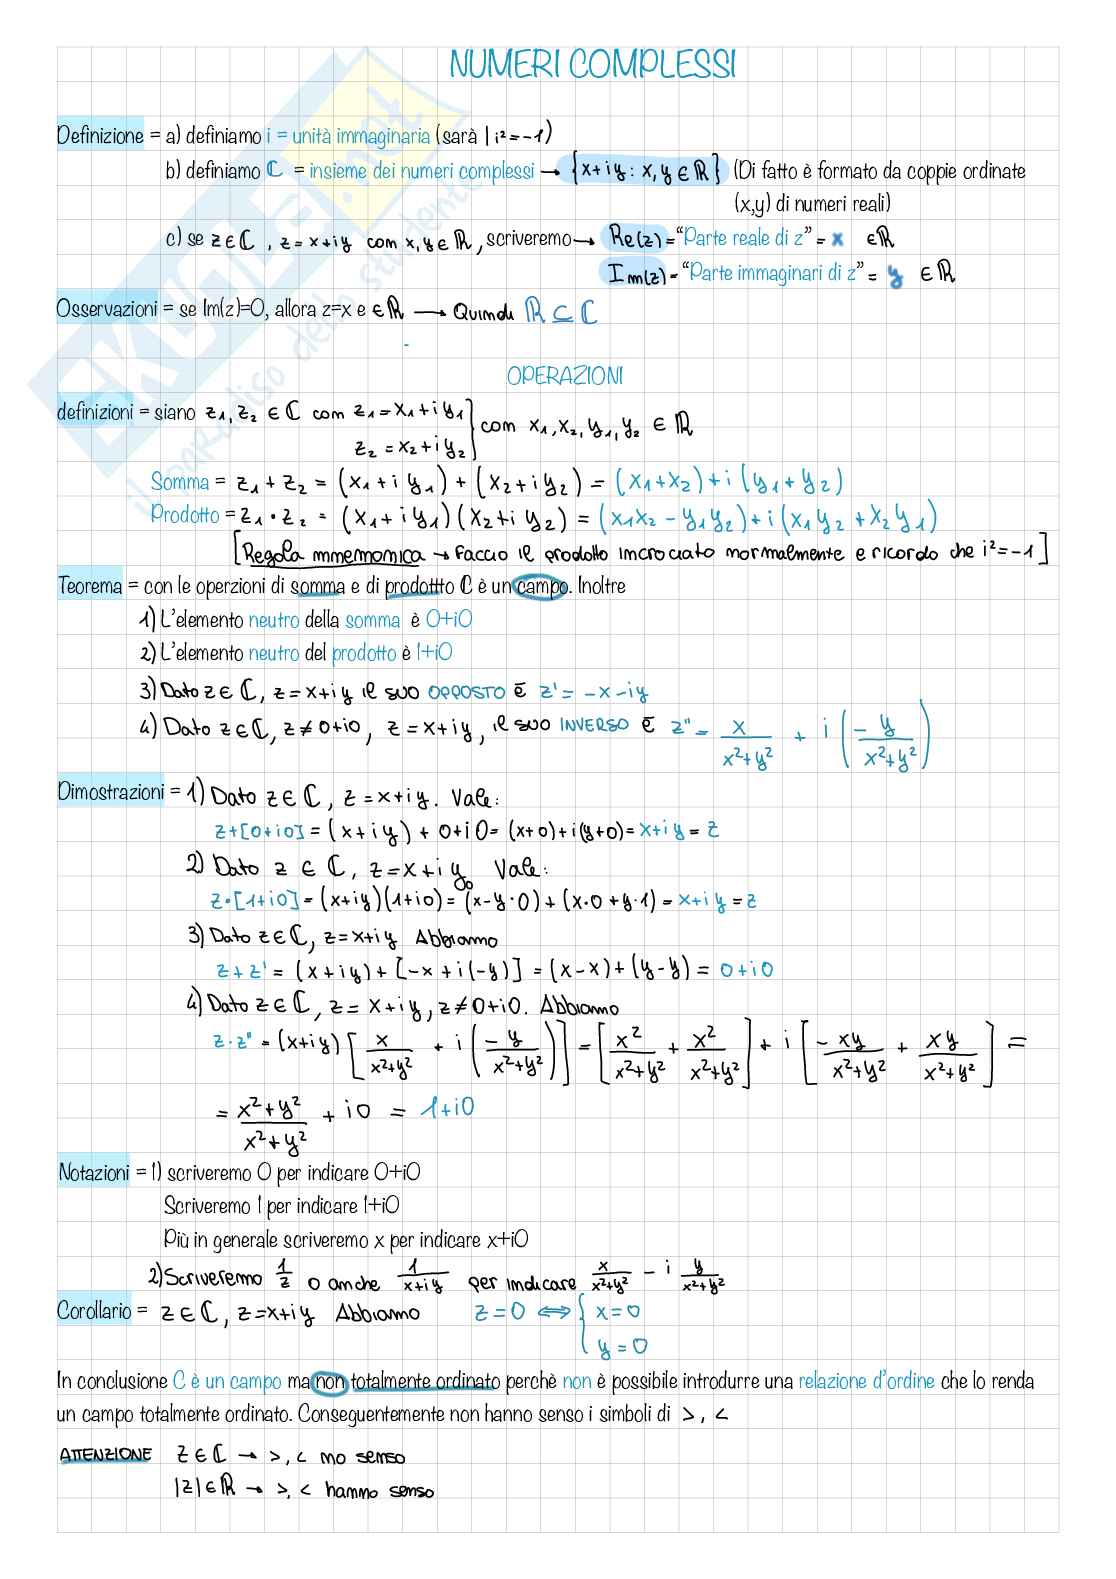 NUMERI COMPLESSI
Definizione = a) definiamo i = unità immaginaria (sarà | i²=-1)
b) definiamo ℂ = insieme dei numeri complessi → {x+iy : x,y ∈ ℝ} (Di fatto è formato da coppie ordinate
(x,y) di numeri reali)
c) se z∈ℂ, z=x+iy con x,y∈ℝ, scriveremo → Re(z)="Parte reale di z" = x ∈ℝ
Im(z)="Parte immaginari di z" = y ∈ℝ
Osservazioni = se Im(z)=0, allora z=x e ∈ℝ → Quindi ℝ⊆ℂ
OPERAZIONI
definizioni = siano z₁,z₂ ∈ ℂ con z₁=x₁+iy₁
z₂=x₂+iy₂ } con x₁,x₂,y₁,y₂ ∈ ℝ
Somma = z₁+z₂ = (x₁+iy₁)+(x₂+iy₂) = (x₁+x₂)+i(y₁+y₂)
Prodotto = z₁·z₂ = (x₁+iy₁)(x₂+iy₂) = (x₁x₂-y₁y₂)+i(x₁y₂+x₂y₁)
[Regola mnemonica → faccio il prodotto incrociato normalmente e ricordo che i²=-1]
Teorema = con le operzioni di somma e di prodottto ℂ è un campo. Inoltre
1) L'elemento neutro della somma è 0+i0
2) L'elemento neutro del prodotto è 1+i0
3) Dato z∈ℂ, z=x+iy il suo OPPOSTO è z'=-x-iy
4) Dato z∈ℂ, z≠0+i0, z=x+iy, il suo INVERSO è z''= x/(x²+y²) + i(-y/(x²+y²))
Dimostrazioni = 1) Dato z∈ℂ, z=x+iy. Vale:
z+[0+i0]=(x+iy)+0+i0=(x+0)+i(y+0)=x+iy=z
2) Dato z∈ℂ, z=x+iy. Vale:
z·[1+i0]=(x+iy)(1+i0)=(x-y·0)+(x·0+y·1)=x+iy=z
3) Dato z∈ℂ, z=x+iy Abbiamo
z+z'=(x+iy)+[-x+i(-y)]=(x-x)+(y-y)=0+i0
4) Dato z∈ℂ, z=x+iy, z≠0+i0. Abbiamo
z·z''=(x+iy)[x/(x²+y²) + i(-y/(x²+y²))]=[x²/(x²+y²) + x²/(x²+y²)]+i[-xy/(x²+y²) + xy/(x²+y²)]=
= (x²+y²)/(x²+y²) + i0 = 1+i0
Notazioni = 1) scriveremo 0 per indicare 0+i0
Scriveremo 1 per indicare 1+i0
Più in generale scriveremo x per indicare x+i0
2) Scriveremo 1/z o anche 1/(x+iy) per indicare x/(x²+y²) - i y/(x²+y²)
Corollario = z∈ℂ, z=x+iy Abbiamo z=0 ⇔ { x=0
y=0
In conclusione C è un campo ma non totalmente ordinato perchè non è possibile introdurre una relazione d'ordine che lo renda
un campo totalmente ordinato. Conseguentemente non hanno senso i simboli di >, <
ATTENZIONE z∈ℂ → >,< no senso
|z|∈ℝ → >,< hanno senso
SKUOLA.net
il paradiso dello studente